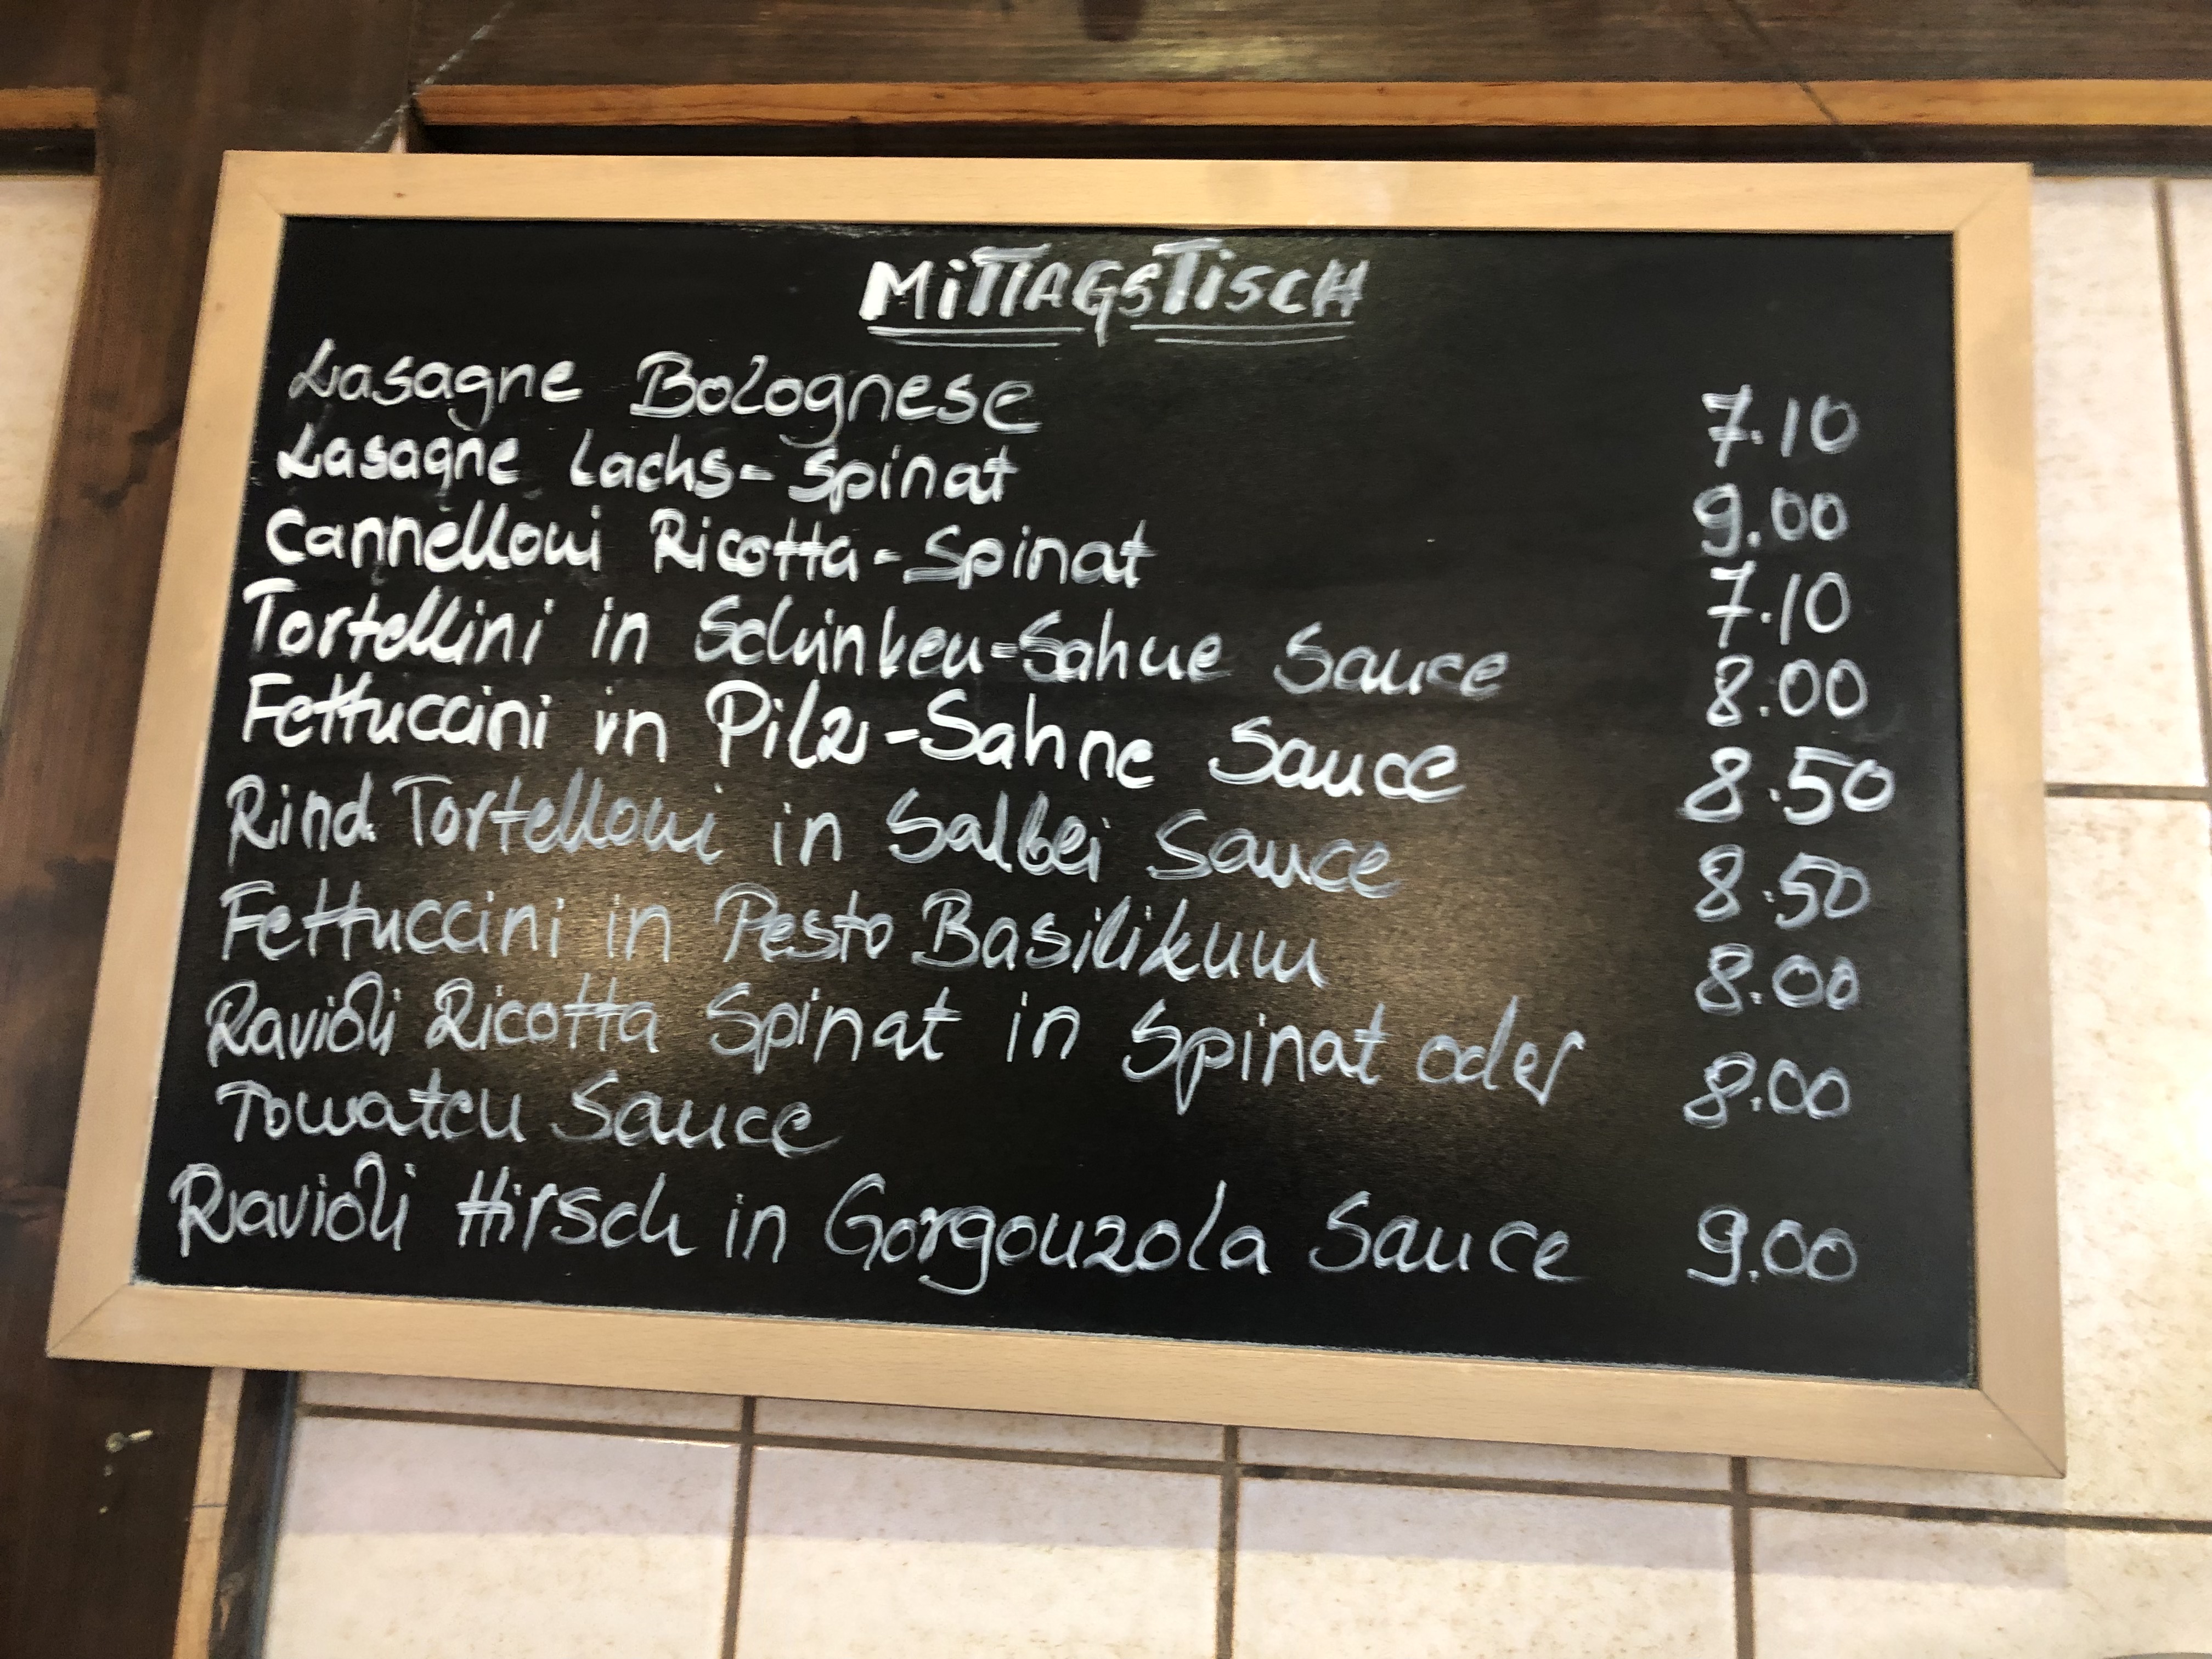 MITTAGSTISCH
Lasagne Bolognese 7.10
Lasagne Lachs-Spinat 9.00
Cannelloni Ricotta-Spinat 7.10
Tortellini in Schinken-Sahne Sauce 8.00
Fettuccini in Pilz-Sahne Sauce 8.50
Rind Tortelloni in Salbei Sauce 8.50
Fettuccini in Pesto Basilikum 8.00
Ravioli Ricotta Spinat in Spinat oder 8.00
Tomaten Sauce
Ravioli Hirsch in Gorgonzola Sauce 9.00